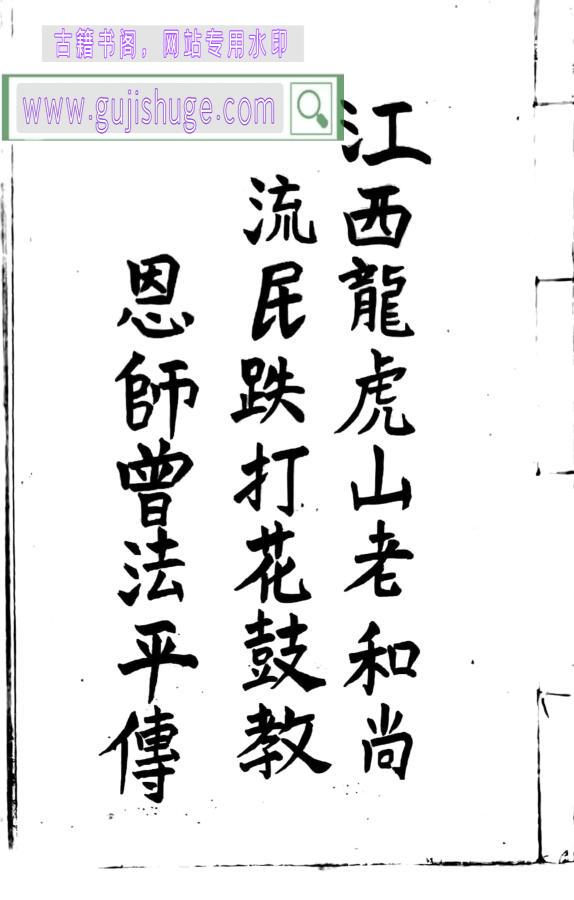 古籍书阁，网站专用水印
www.gujishuge.com
江西龍虎山老和尚
流民跌打花鼓教
恩師曾法平傳